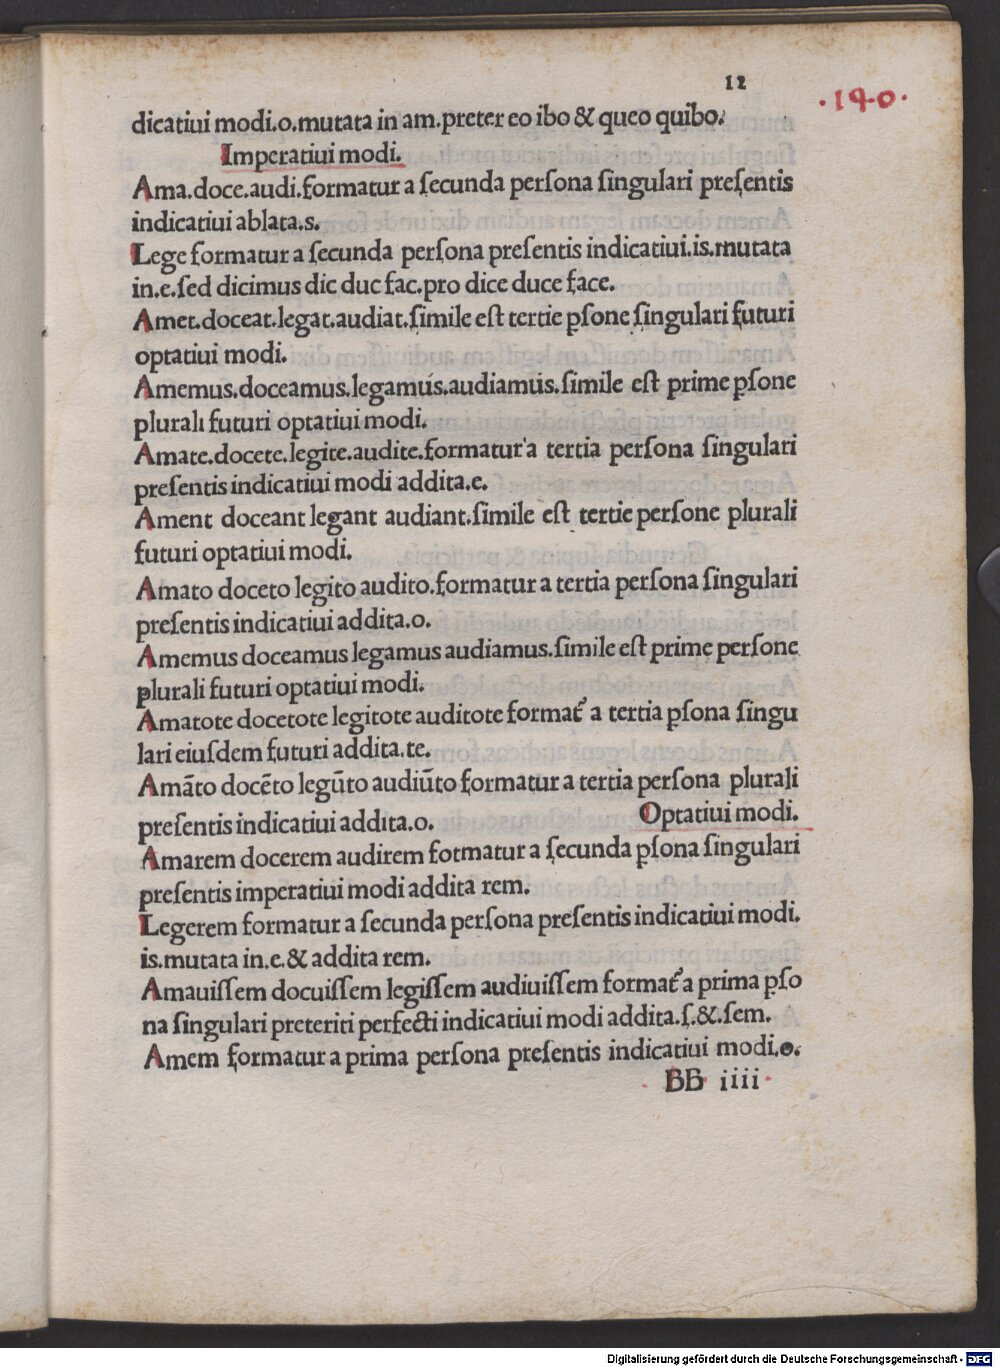 12
.190.
dicatiui modi.o.mutata in am.preter eo ibo & queo quibo.
Imperatiui modi.
Ama.doce.audi.formatur a ſecunda perſona ſingulari preſentis
indicatiui ablata.s.
Lege formatur a ſecunda perſona preſentis indicatiui.is.mutata
in.e.ſed dicimus dic duc fac.pro dice duce face.
Amet.doceat.legat.audiat.ſimile eſt tertie pſone ſingulari futuri
optatiui modi.
Amemus.doceamus.legamus.audiamus.ſimile eſt prime pſone
plurali futuri optatiui modi.
Amate.docete.legite.audite.formatur a tertia perſona ſingulari
preſentis indicatiui modi addita.e.
Ament doceant legant audiant.ſimile eſt tertie perſone plurali
futuri optatiui modi.
Amato doceto legito audito.formatur a tertia perſona ſingulari
preſentis indicatiui addita.o.
Amemus doceamus legamus audiamus.ſimile eſt prime perſone
plurali futuri optatiui modi.
Amatote docetote legitote auditote format᷑ a tertia pſona ſingu
lari eiuſdem futuri addita.te.
Amāto docēto legūto audiūto formatur a tertia perſona plurali
preſentis indicatiui addita.o. Optatiui modi.
Amarem docerem audirem fotmatur a ſecunda pſona ſingulari
preſentis imperatiui modi addita rem.
Legerem formatur a ſecunda perſona preſentis indicatiui modi.
is.mutata in.e.& addita rem.
Amauiſſem docuiſſem legiſſem audiuiſſem format᷑ a prima pſo
na ſingulari preteriti perfecti indicatiui modi addita.ſ.&.ſem.
Amem formatur a prima perſona preſentis indicatiui modi.o.
BB iiii
Digitalisierung gefördert durch die Deutsche Forschungsgemeinschaft - DFG